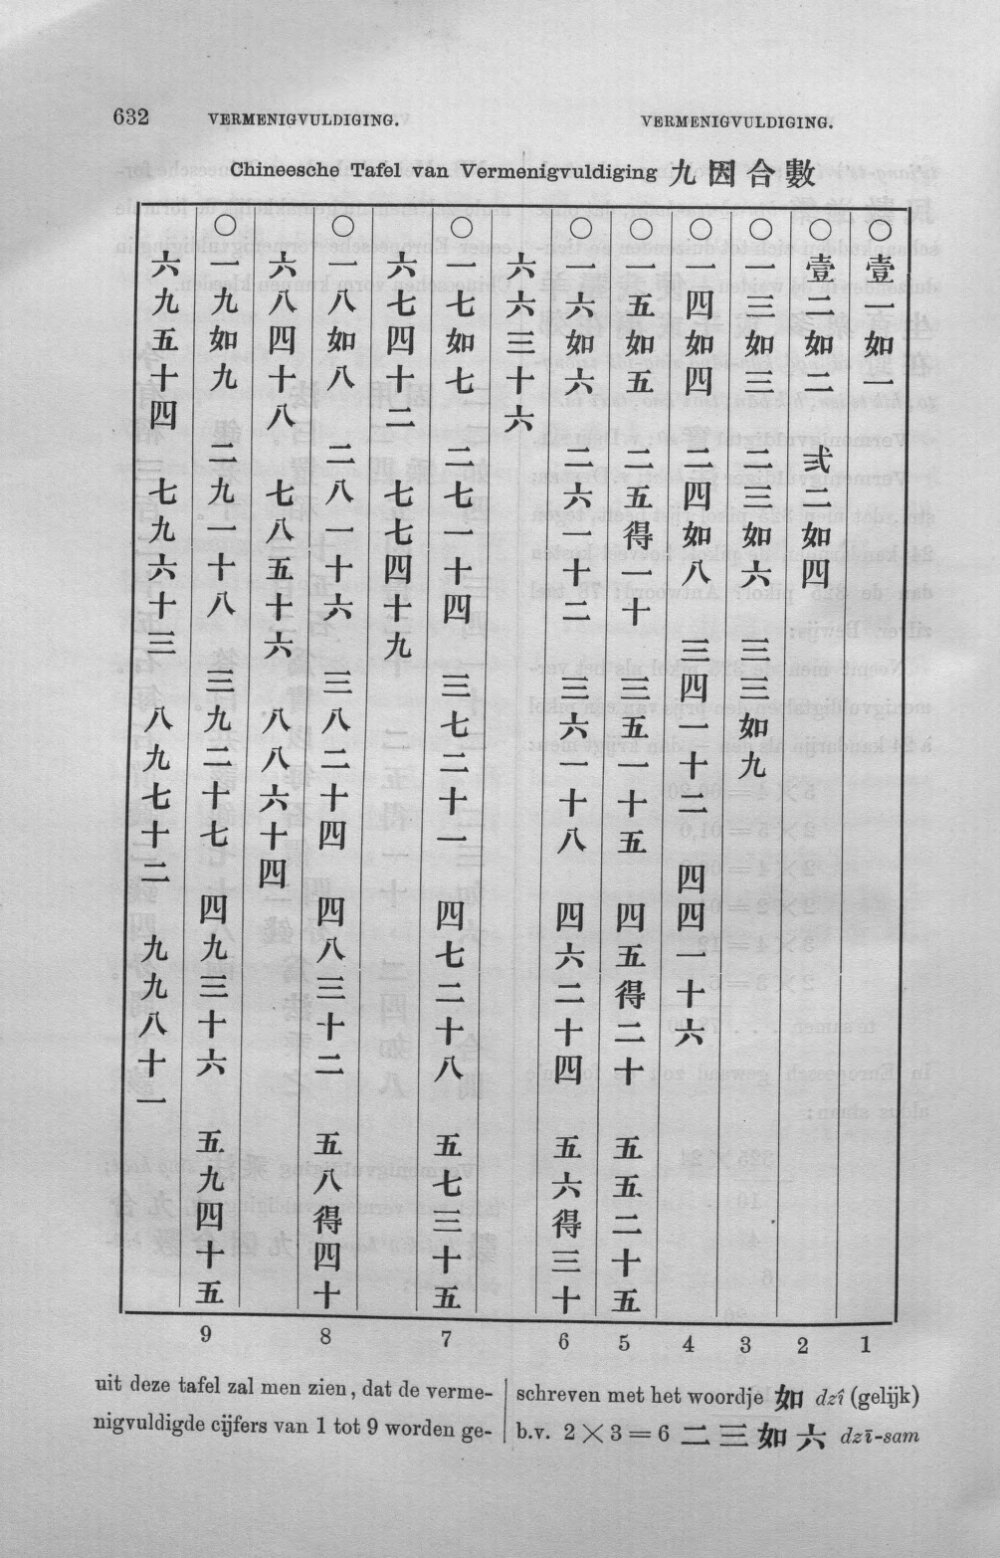 632 VERMENIGVULDIGING. VERMENIGVULDIGING.
Chineesche Tafel van Vermenigvuldiging 九因合數
○壹一如一
○壹二如二 弍二如四
○一三如三 二三如六 三三如九
○一四如四 二四如八 三四一十二 四四一十六
○一五如五 二五得一十 三五一十五 四五得二十 五五二十五
○六如六 二六一十二 三六一十八 四六二十四 五六得三十
六六三十六
○一七如七 二七一十四 三七二十一 四七二十八 五七三十五
六七四十二 七七四十九
○一八如八 二八一十六 三八二十四 四八三十二 五八得四十
六八四十八 七八五十六 八八六十四
○一九如九 二九一十八 三九二十七 四九三十六 五九四十五
六九五十四 七九六十三 八九七十二 九九八十一
9 8 7 6 5 4 3 2 1
uit deze tafel zal men zien, dat de verme-
nigvuldigde cijfers van 1 tot 9 worden ge-
schreven met het woordje 如 dzî (gelijk)
b.v. 2 × 3 = 6 二三如六 dzī-sam